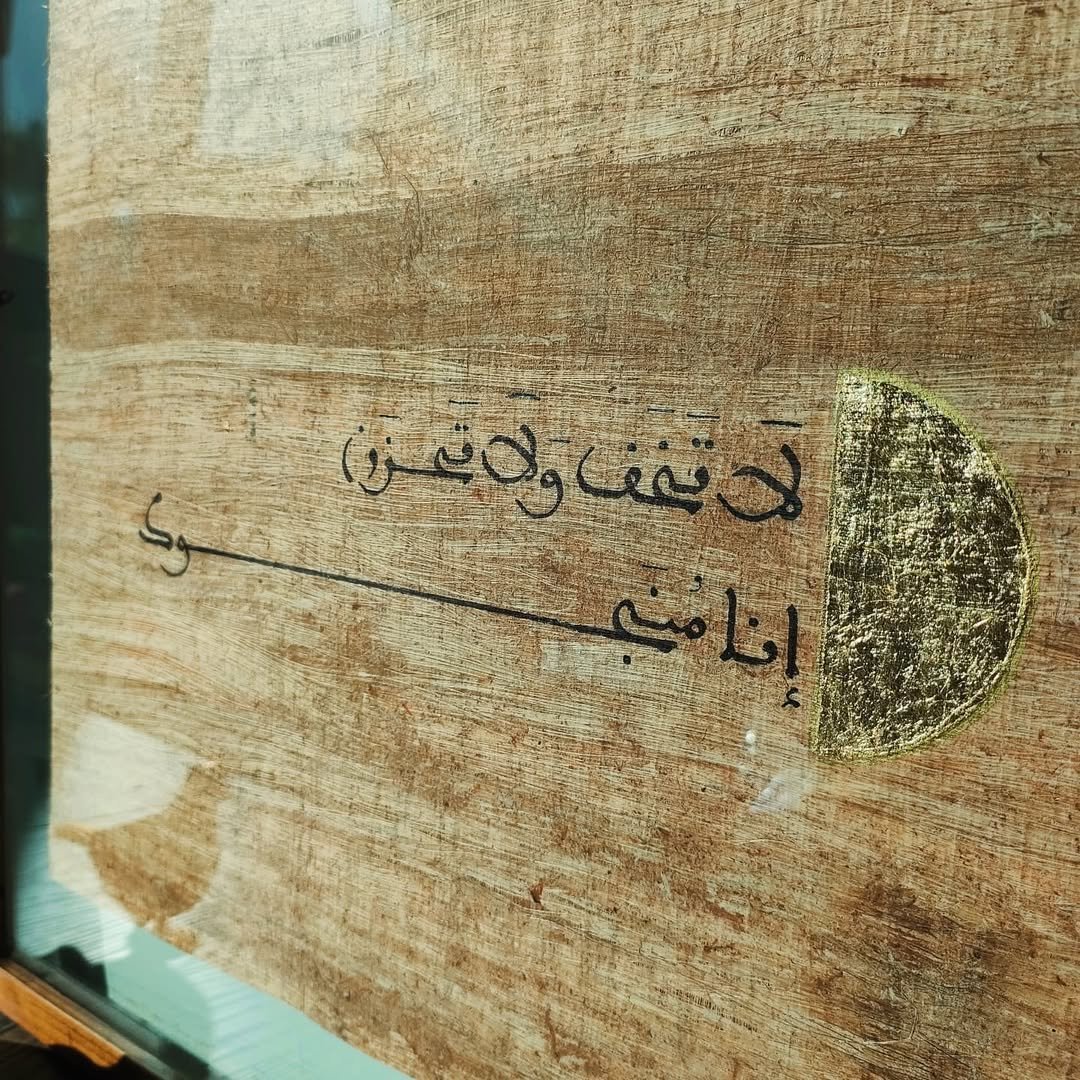 لَا تَخَف وَلَا تَحزَن
إنا مُنَجوك